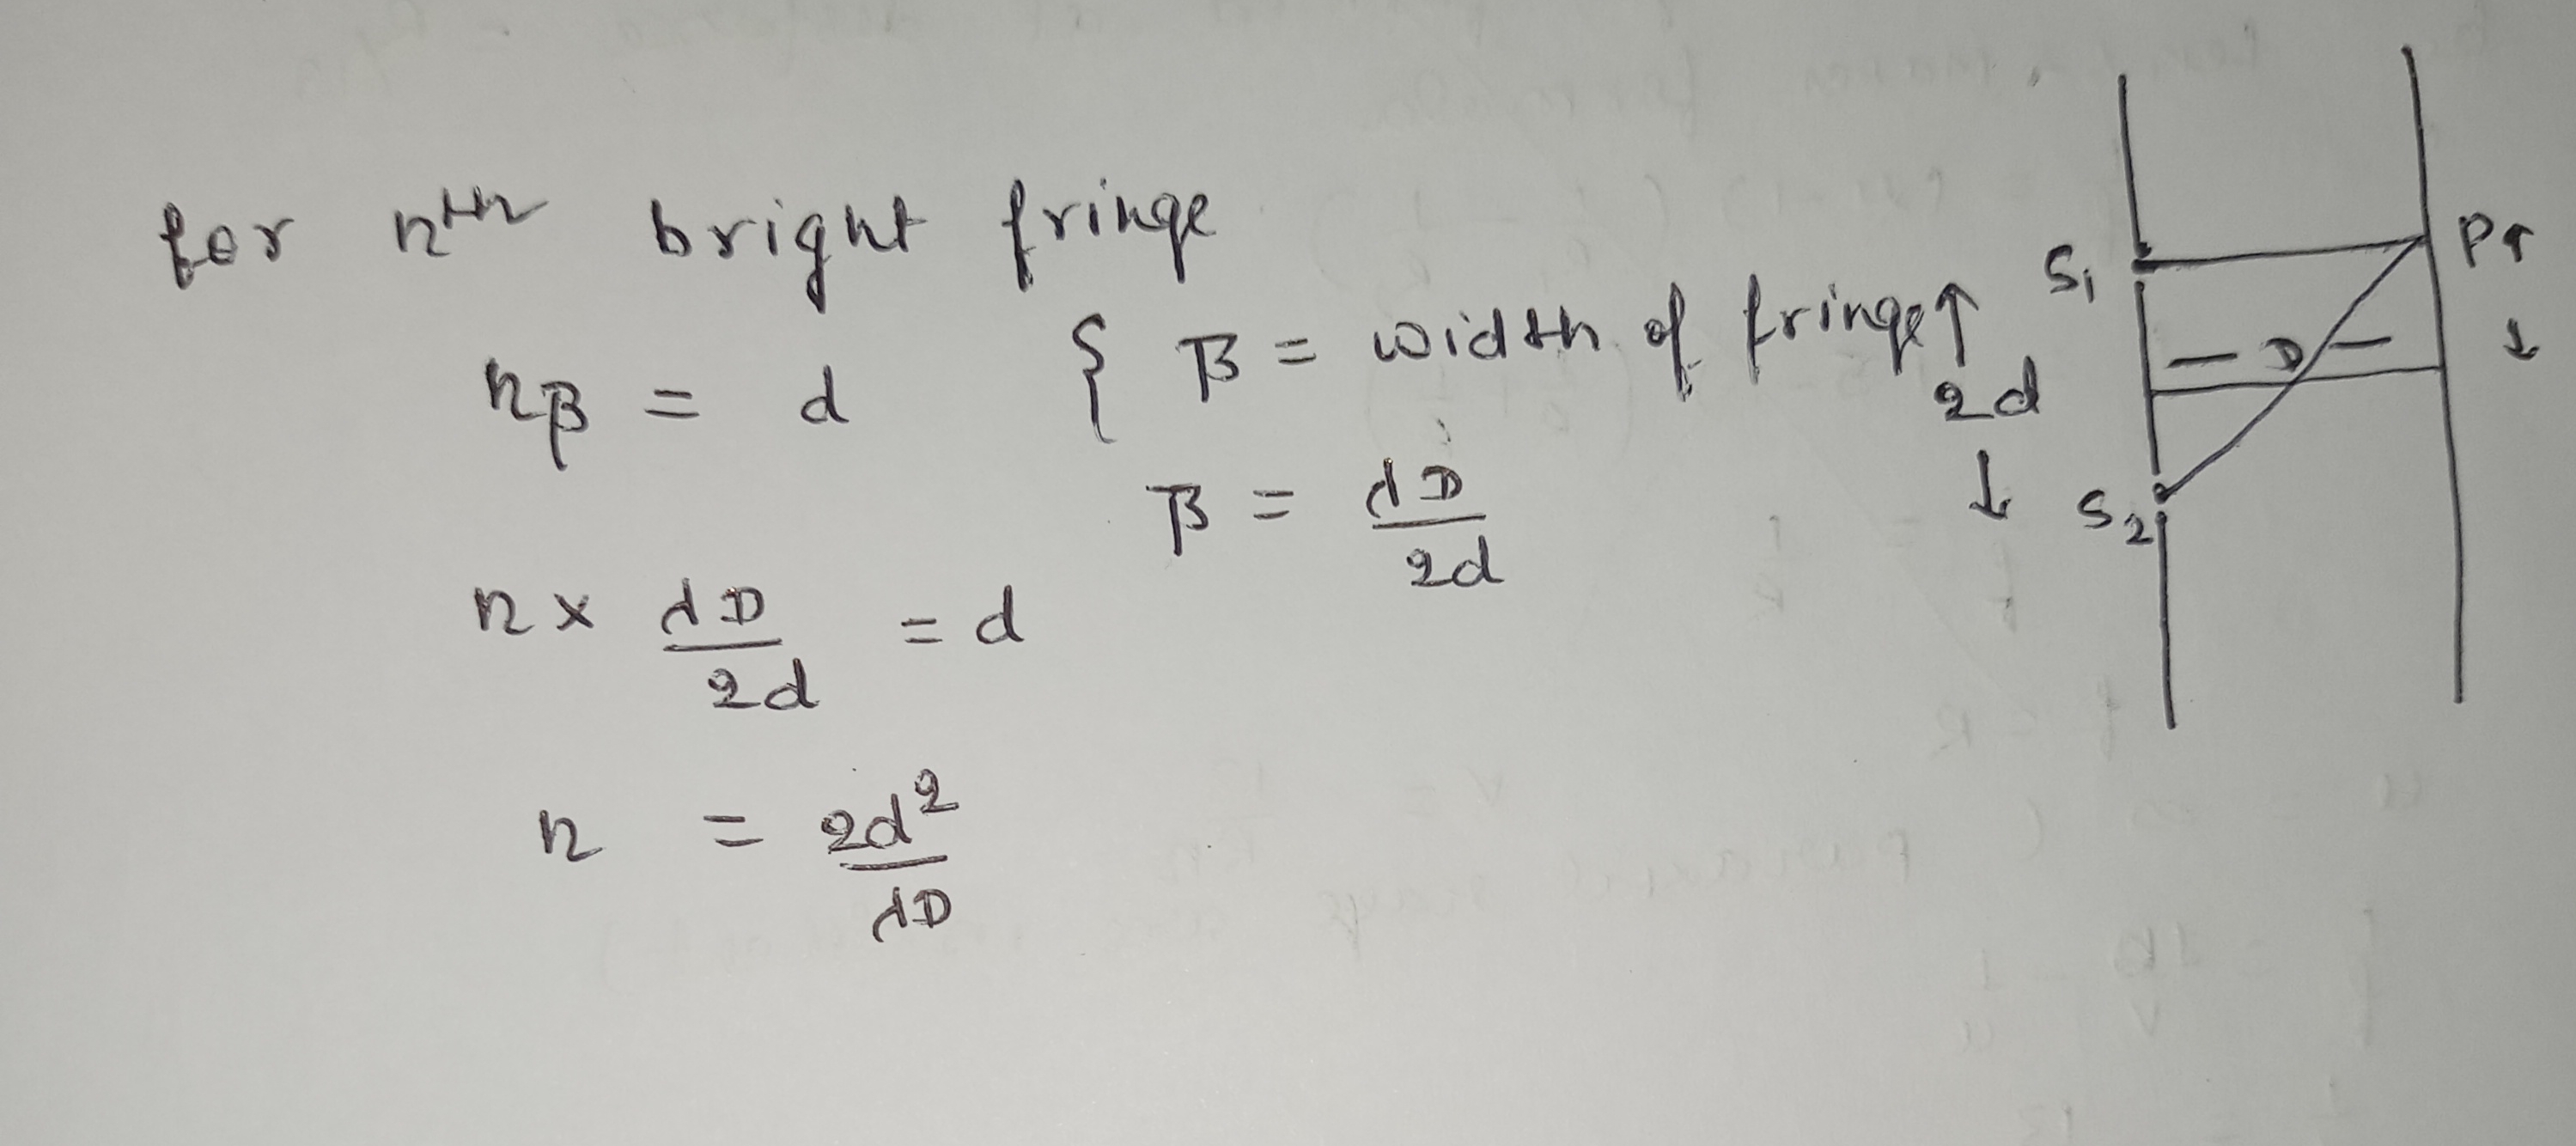 for nth bright fringe
nβ = d { β = width of fringe
β = λD/2d
n × λD/2d = d
n = 2d²/λD
S₁ P↑
↑ 2d ↓ – D – ↓
S₂